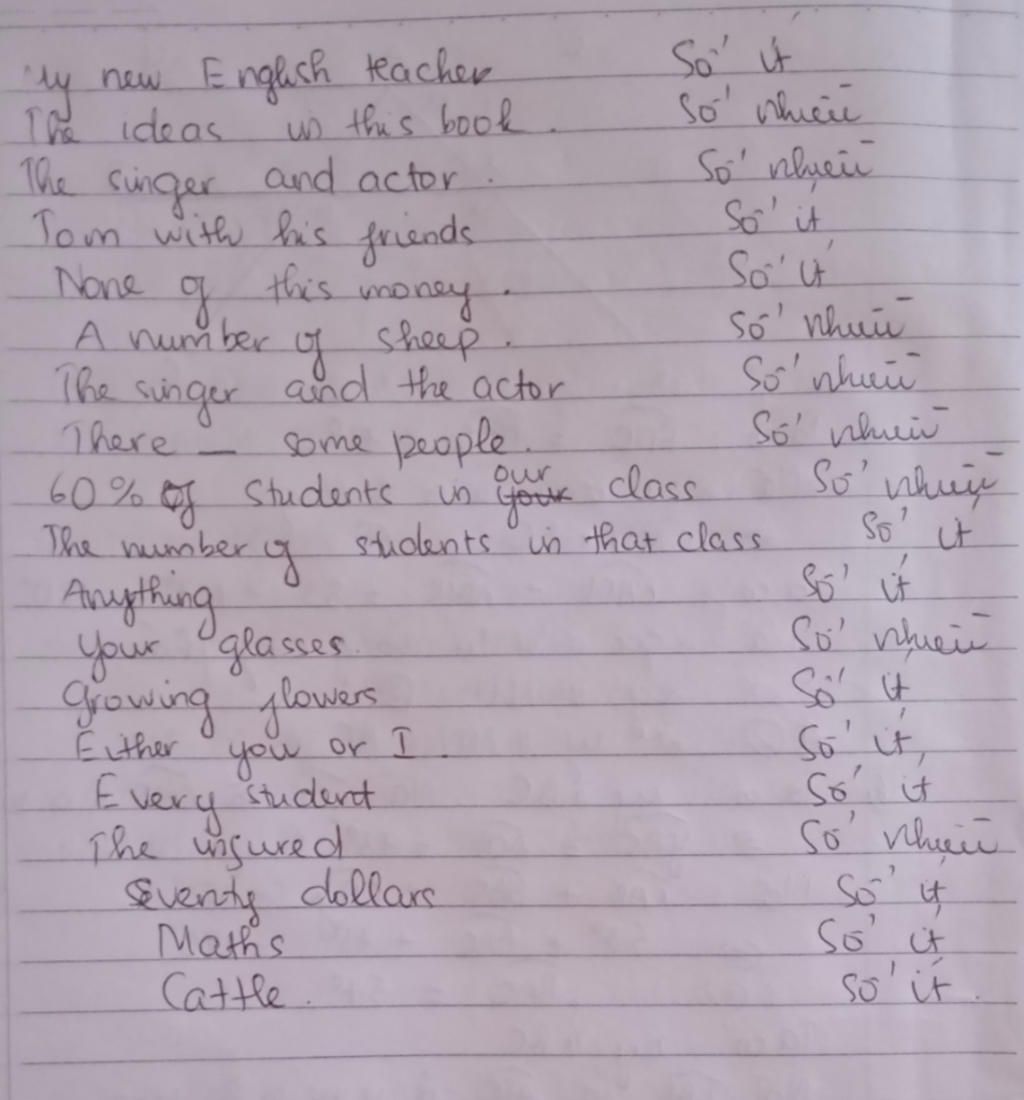 My new English teacher Số ít
The ideas in this book. Số nhiều
The singer and actor. Số nhiều
Tom with his friends Số ít
None of this money. Số ít
A number of sheep. Số nhiều
The singer and the actor Số nhiều
There _ some people. Số nhiều
60% of students in our class Số nhiều
The number of students in that class Số ít
Anything Số ít
Your glasses. Số nhiều
Growing flowers Số ít
Either you or I. Số ít
Every student Số ít
The insured Số nhiều
Seventy dollars Số ít
Maths Số ít
Cattle. Số ít.